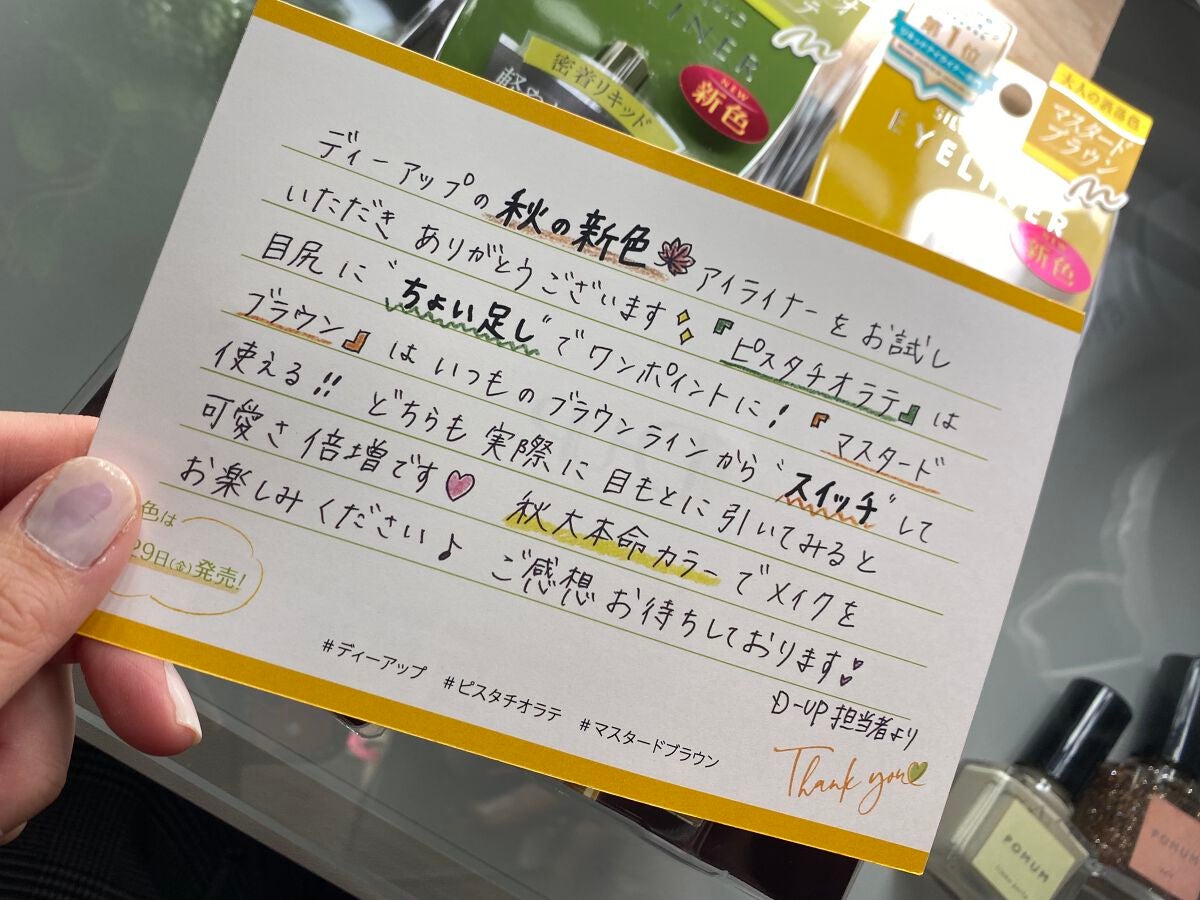 INER
密着リキッド
NEW
新色
第1位
大人の洒落色
マスタード
ブラウン
EYELINER
新色
ディーアップの秋の新色 アイライナーをお試し
いただき ありがとうございます 『ピスタチオラテ』は
目尻に“ちょい足し”でワンポイントに! 『マスタード
ブラウン』はいつものブラウンラインから“スイッチ”して
使える!! どちらも実際に目もとに引いてみると
可愛さ倍増です♡ 秋大本命カラーでメイクを
お楽しみください♪ ご感想お待ちしております
色は
29日(金)発売!
D-UP担当者より
Thank you
#ディーアップ #ピスタチオラテ #マスタードブラウン
POMUM
POMUM